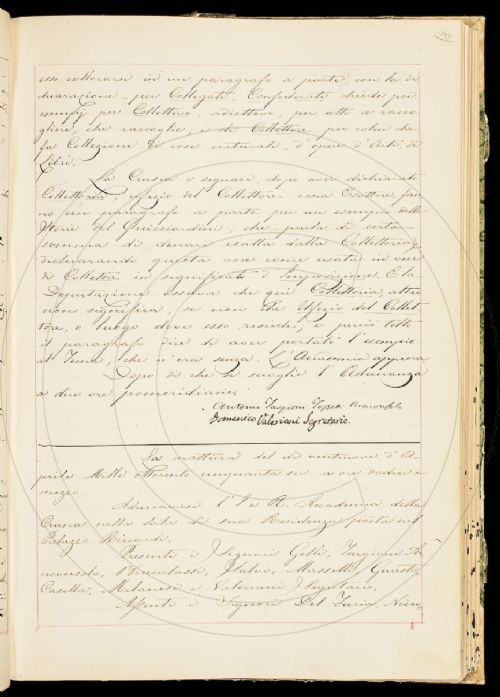 esso collocarsi in un paragrafo a parte con la di
chiarazione "per Collegati, Confederati chiede poi
esempj per Collettivo, adiettivo, per atto a racco
gliere, che raccoglie, e di Collettore per colui che
fa Collezione di cose naturali, d'opere d'Arti, di
Libri.
La Crusca e seguaci, dopo aver dichiarato
Collettoria, ufizio del Collettore ossia Esattore, fan
no un paragrafo a parte per un esempio delle
Storie del Guicciardini, che parla di certa
somma di denari esatta dalla Collettoria,
dichiarando questa voce come usata in vece
di Colletta in significato d'Imposizione. E la
Deputazione osserva che qui Collettoria altro
non significa, se non che Ufizio del Collet
tore, o luogo dove esso risiede; e perciò tolto
il paragrafo dice di aver portato l'esempio
al Tema, che n'era senza. L'Accademia approva.
Dopo di che si scioglie l'Adunanza
a due ore pomeridiane.
Antonio Targioni Tozzetti
Domenico Valeriani Segretario.
La mattina del dì ventitre d'A
prile Mille Ottocento cinquanta si a ore dodici e
mezzo
Adunavasi l'I. e R. Accademia della
Crusca nella Sala di sua Residenza posta nel
Palazzo Riccardi.
Presenti i Signori Gelli, Targioni
Brucalassi, Masselli, Guasti
Casella, Milanesi e Valeriani Segretario.
Assenti i Signori Del Furia, Nicco